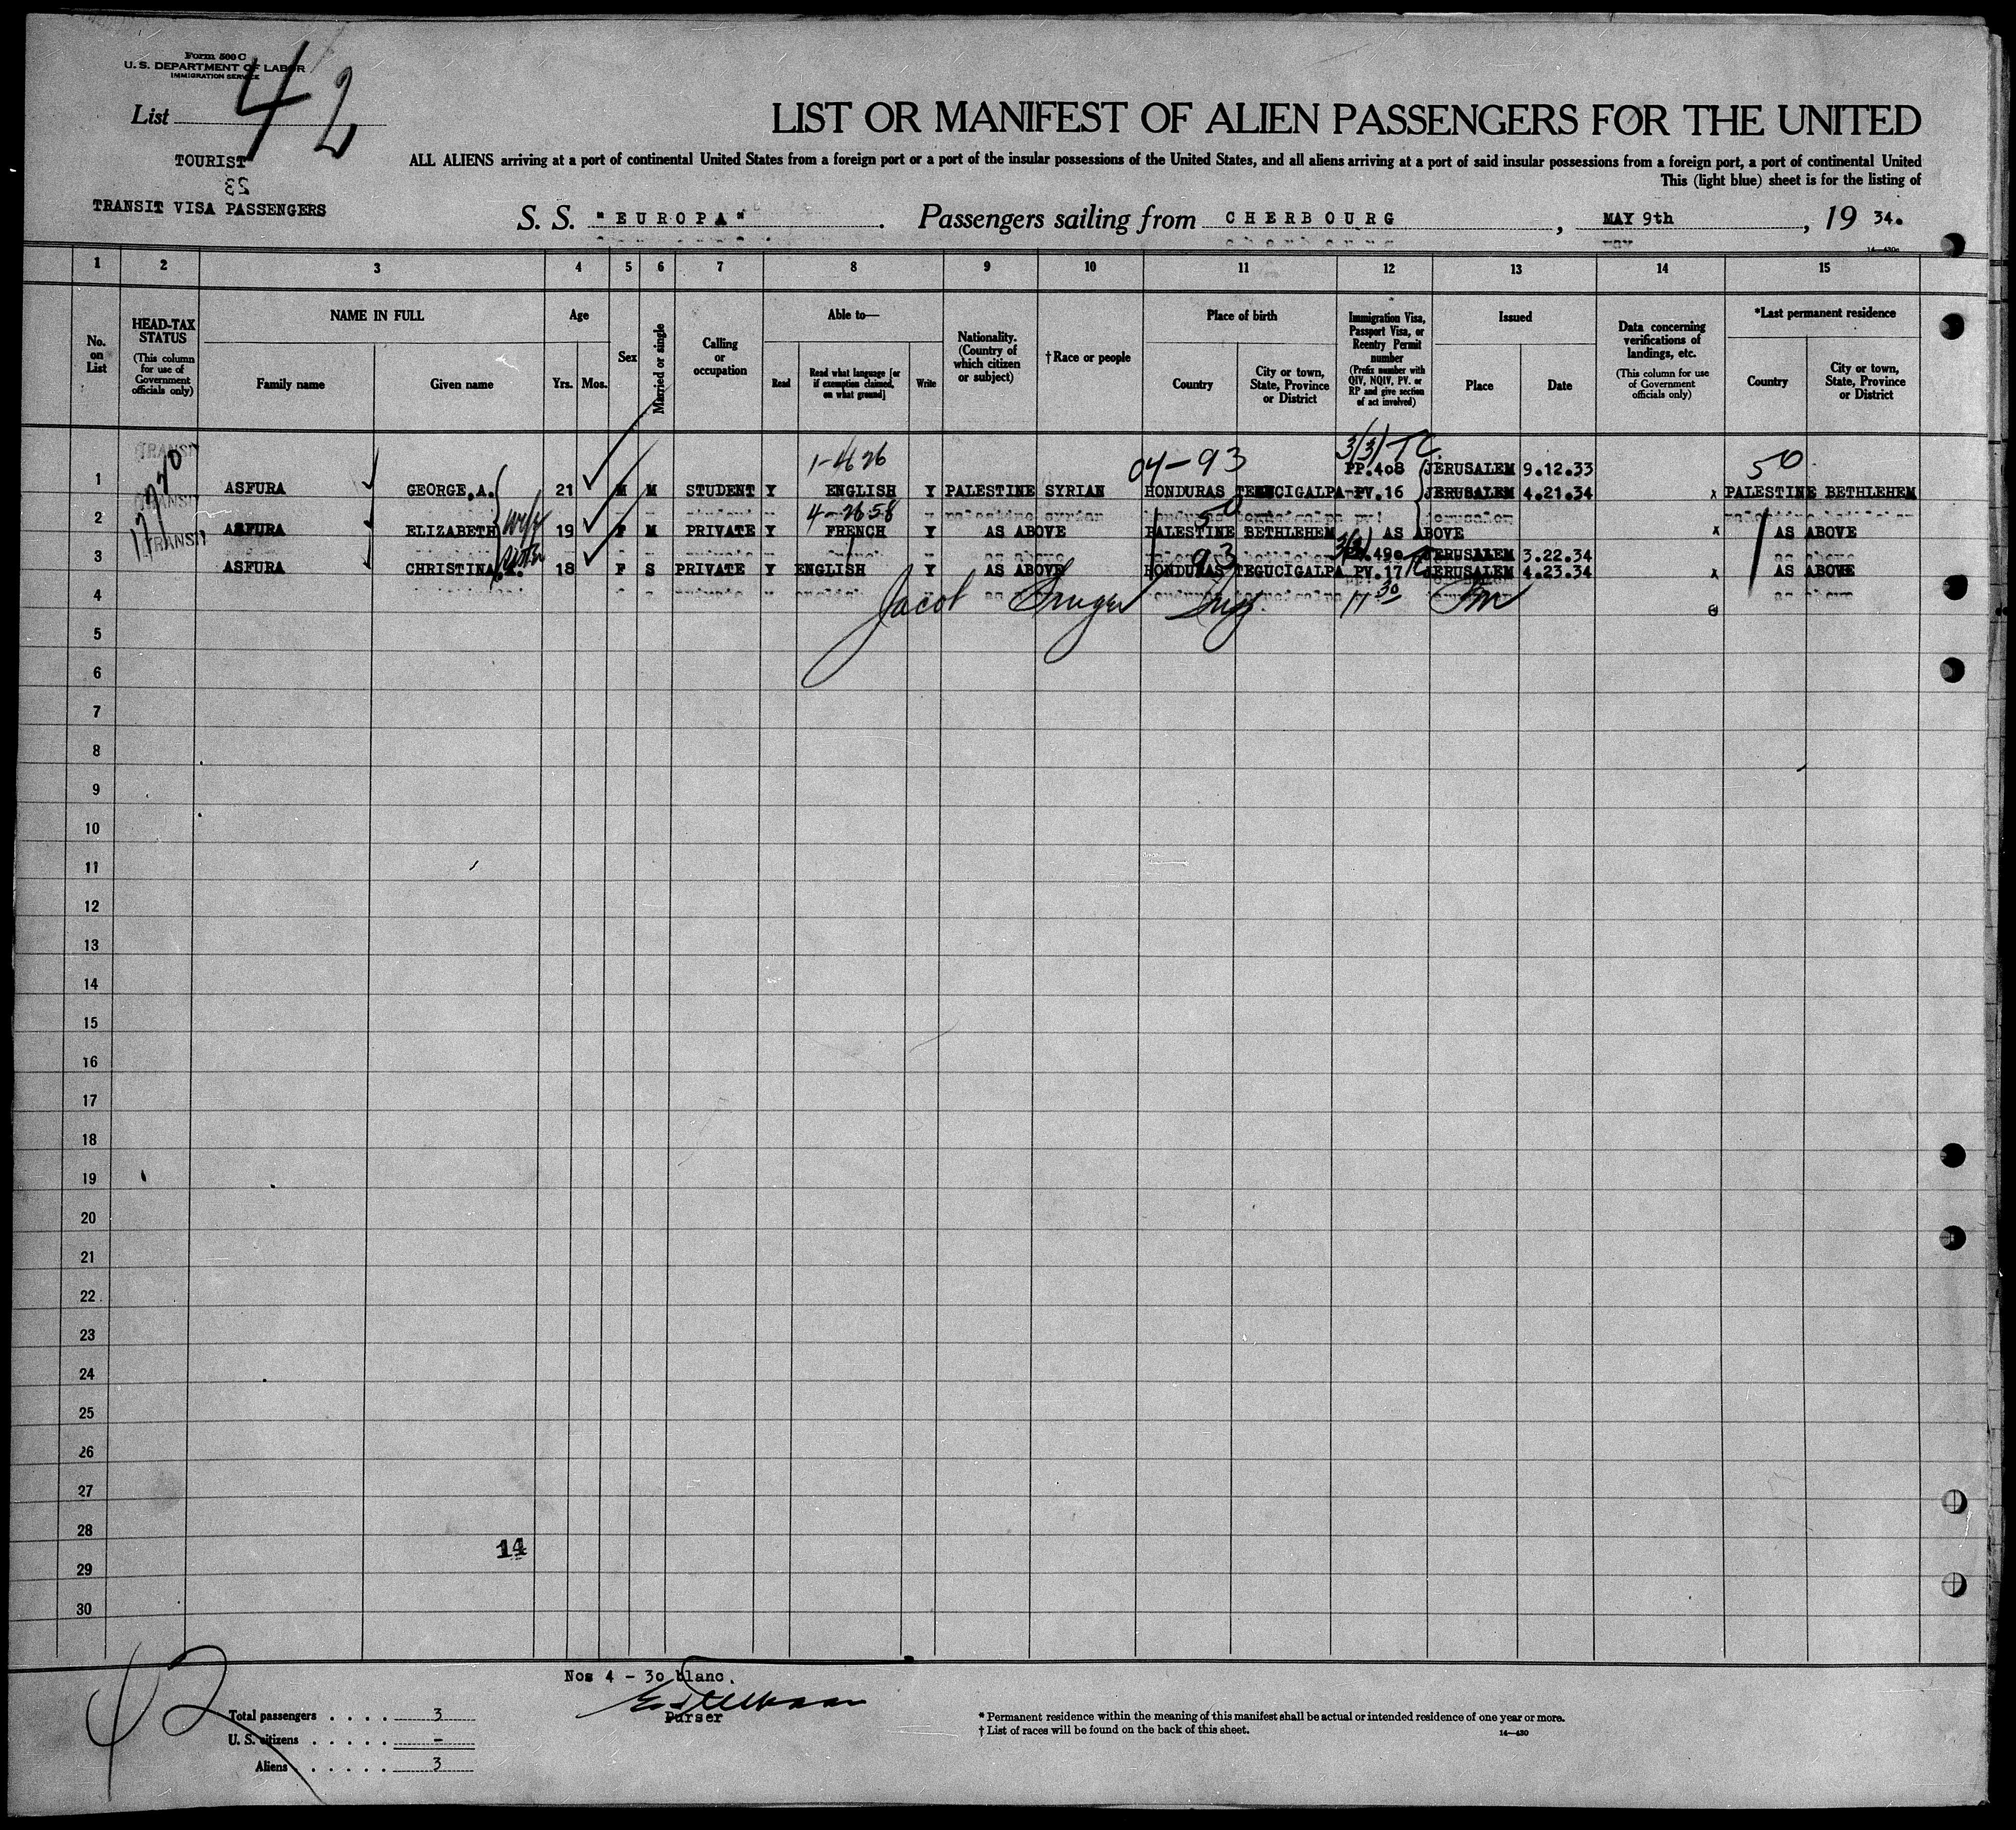 Form 500 C
U. S. DEPARTMENT OF LABOR
IMMIGRATION SERVICE
List 42
LIST OR MANIFEST OF ALIEN PASSENGERS FOR THE UNITED
TOURIST
23
TRANSIT VISA PASSENGERS
ALL ALIENS arriving at a port of continental United States from a foreign port or a port of the insular possessions of the United States, and all aliens arriving at a port of said insular possessions from a foreign port, a port of continental United
This (light blue) sheet is for the listing of
S. S. "EUROPA". Passengers sailing from CHERBOURG, MAY 9th, 19 34.
14—430a
1 2 3 4 5 6 7 8 9 10 11 12 13 14 15
No. on List
HEAD-TAX STATUS
(This column for use of Government officials only)
NAME IN FULL
Family name
Given name
Age
Yrs. Mos.
Sex
Married or single
Calling or occupation
Able to—
Read
Read what language [or if exemption claimed, on what ground]
Write
Nationality. (Country of which citizen or subject)
† Race or people
Place of birth
Country
City or town, State, Province or District
Immigration Visa, Passport Visa, or Reentry Permit number
(Prefix number with QIV, NQIV, PV. or RP and give section of act involved)
Issued
Place
Date
Data concerning verifications of landings, etc.
(This column for use of Government officials only)
*Last permanent residence
Country
City or town, State, Province or District
TRANSIT 1-426 04-93 3(3) TC PP.408 JERUSALEM 9.12.33 50
1 ASFURA GEORGE.A. 21 M M STUDENT Y ENGLISH Y PALESTINE SYRIAN HONDURAS TEGUCIGALPA PV.16 JERUSALEM 4.21.34 x PALESTINE BETHLEHEM
TRANSIT 4-2658 50
2 ASFURA ELIZABETH wife 19 F M PRIVATE Y FRENCH Y AS ABOVE PALESTINE BETHLEHEM AS ABOVE x AS ABOVE
TRANSIT sister 93 3(3) .490 JERUSALEM 3.22.34
3 ASFURA CHRISTINA 18 F S PRIVATE Y ENGLISH Y AS ABOVE HONDURAS TEGUCIGALPA PV.17 TC JERUSALEM 4.23.34 x AS ABOVE
4 Jacob 11 30
5
6
7
8
9
10
11
12
13
14
15
16
17
18
19
20
21
22
23
24
25
26
27
28
14
29
30
42
Nos 4 - 30 blanc.
Purser
Total passengers . . . . 3
U. S. citizens . . . . . -
Aliens . . . . . . 3
* Permanent residence within the meaning of this manifest shall be actual or intended residence of one year or more.
† List of races will be found on the back of this sheet.
14—430